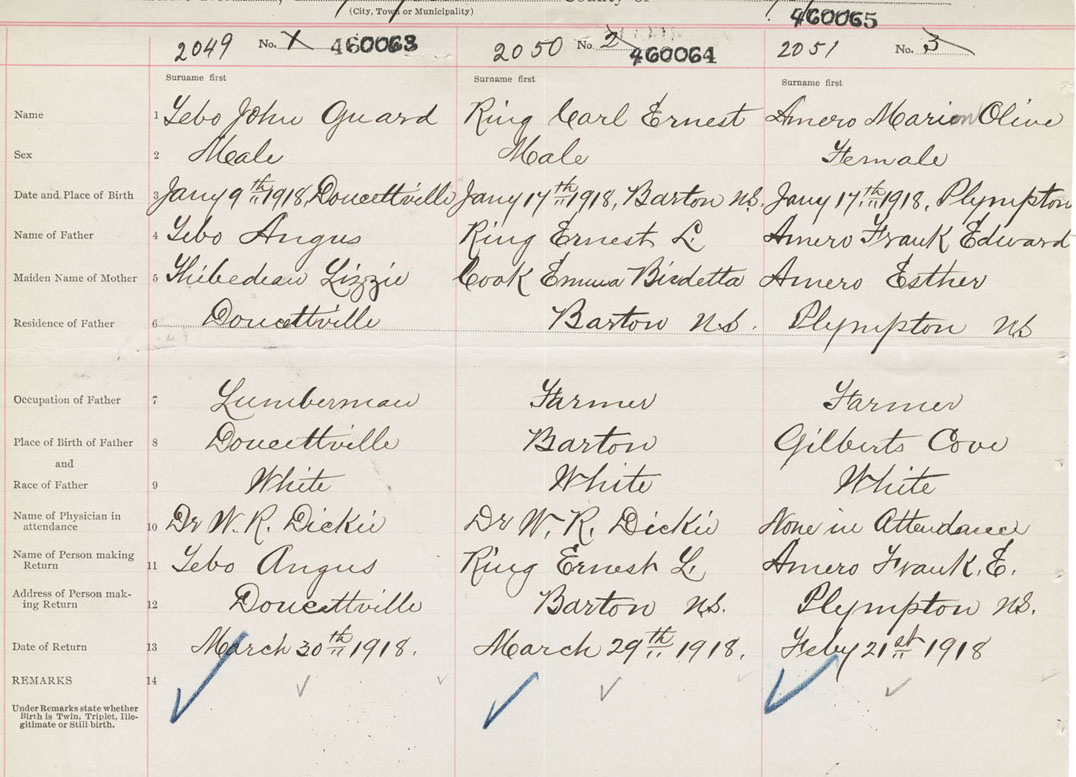 (City, Town or Municipality) County of
460065
2049 No. 1 460063 2050 No. 2 460064 2051 No. 3
Surname first Surname first Surname first
Name 1 Yebo John Guard Ring Carl Ernest Amero Marion Olive
Sex 2 Male Male Female
Date and Place of Birth 3 Jany 9th 1918, Doucettville Jany 17th 1918, Barton N.S. Jany 17th 1918, Plympton
Name of Father 4 Yebo Angus Ring Ernest L. Amero Frank Edward
Maiden Name of Mother 5 Thibedeau Lizzie Cook Emma Birdetta Amero Esther
Residence of Father 6 Doucettville Barton N.S. Plympton NS
Occupation of Father 7 Lumberman Farmer Farmer
Place of Birth of Father 8 Doucettville Barton Gilberts Cove
and
Race of Father 9 White White White
Name of Physician in
attendance 10 Dr W. R. Dickie Dr W. R. Dickie None in Attendance
Name of Person making
Return 11 Yebo Angus Ring Ernest L. Amero Frank. E.
Address of Person mak-
ing Return 12 Doucettville Barton N.S. Plympton NS.
Date of Return 13 March 30th 1918. March 29th 1918. Feby 21st 1918
REMARKS 14
Under Remarks state whether
Birth is Twin, Triplet, Ille-
gitimate or Still-birth.